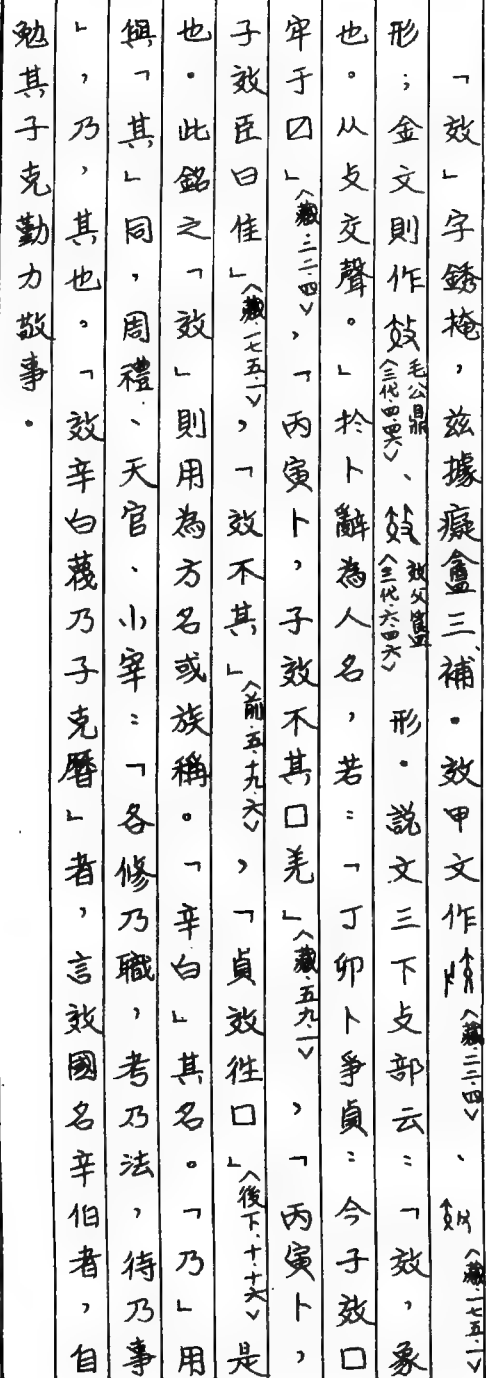 「效」字銹掩，兹據癡盨三補．效甲文作〈藏．二二．四〉、〈藏．一七五．一〉
形；金文則作毛公鼎〈三代．四．四六〉、效父簋〈三代．六．四六〉形．說文三下攴部云：「效，象
也。从攴交聲。」於卜辭為人名，若：「丁卯卜爭貞：今子效囗
牢于囗」〈藏．二二．四〉，「丙寅卜，子效不其囗羌」〈藏．五九．一〉，「丙寅卜，
子效臣曰隹」〈藏．一七五．一〉，「效不其」〈前．五．十九．六〉，「貞效往囗」〈後下．十．十六〉是
也。此銘之「效」則用為方名或族稱。「辛白」其名。「乃」用
與「其」同，周禮、天官、小宰：「各修乃職，考乃法，待乃事
」，乃，其也。「效辛白蔑乃子克曆」者，言效國名辛伯者，自
勉其子克勤力敬事．